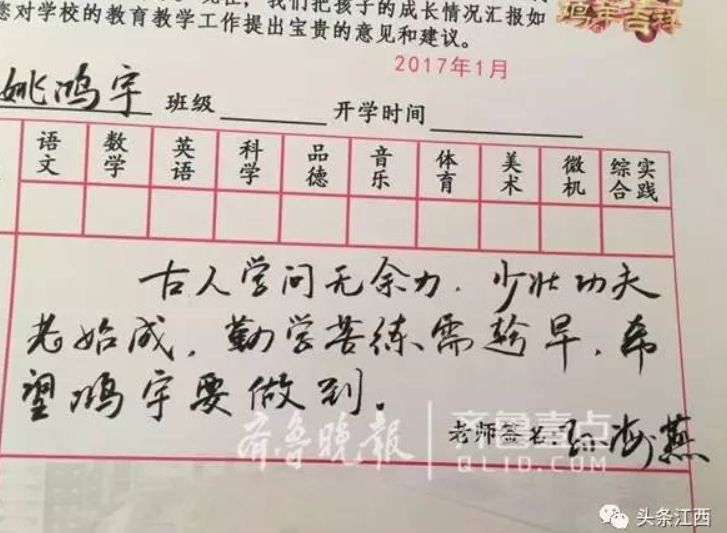 您对学校的教育教学工作提出宝贵的意见和建议。
我们把孩子的成长情况汇报如
鸡年吉祥
2017年1月
姚鸿宇 班级 开学时间
语文 数学 英语 科学 品德 音乐 体育 美术 微机 综合实践
古人学问无余力.少壮功夫
老始成,勤学苦练需趁早,希
望鸿宇要做到.
老师签名:孙海燕
齐鲁晚报 齐鲁壹点
QLID.COM
头条江西